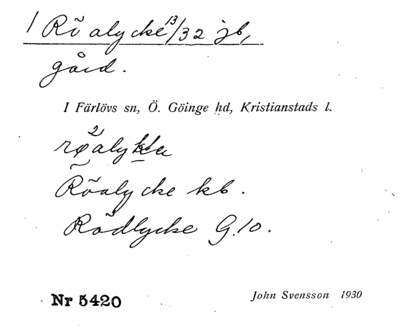 1 Röalycke 13/32 jb,
gård.
I Färlövs sn, Ö. Göinge hd, Kristianstads l.
Röalycke kb.
Rödlycke G.10.
Nr 5420
John Svensson 1930